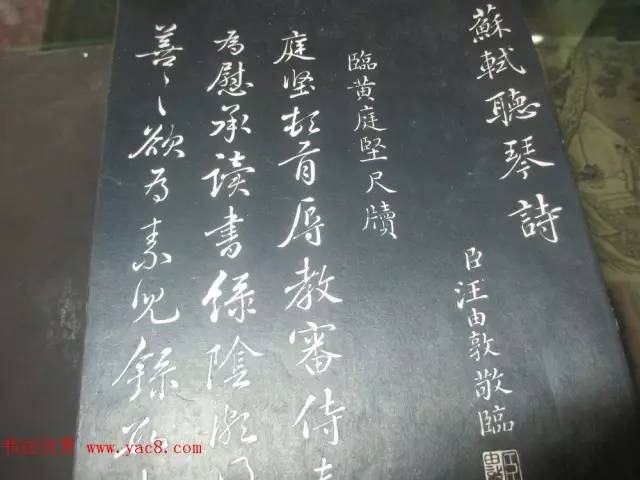 蘇軾聽琴詩
臣汪由敦敬臨
臨黃庭堅尺牘
庭堅頓首辱教審侍
為慰承讀書綠陰頗
善〻欲為素兒錄
书法欣赏 www.yac8.com